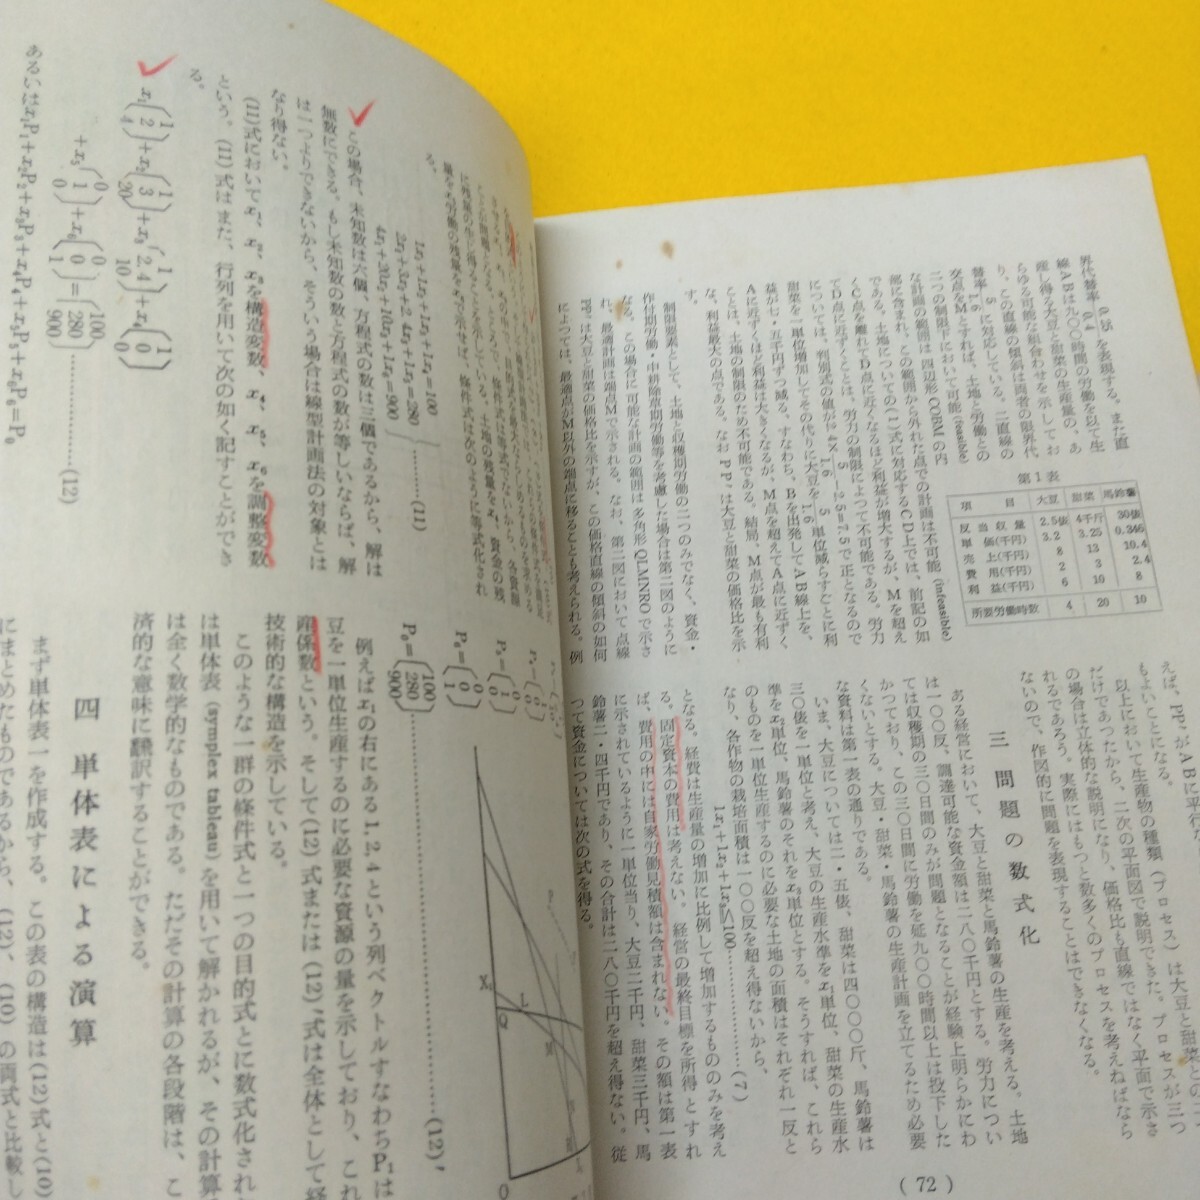 界代替率 0.25/0.4 を表現する。また直
線ABは九〇〇時間の労働を以て生
産し得る大豆と甜菜の生産量の、あ
らゆる可能な組合わせを示してお
り、この直線の傾斜は両者の限界代
替率 5/1.6 に対応している。二直線の
交点をMとすれば、土地と労働との
二つの制限下において可能(feasible)
な計画の範囲は四辺形COBMの内
部に含まれ、この範囲から外れた点での計画は不可能(infeasible)
である。土地についての(1)式に対応するCD上では、前記の如
くC点を離れてD点に近くなるほど利益が増大するが、Mを超え
てD点に近ずくことは、労力の制限によつて不可能である。労力
については、判別式の値が
甜菜を一単位増加してその代りに大豆を 5/1.6 単位減らすごとに利
益が七・五千円ずつ減る。すなわち、Bを出発してAB線上を、
Aに近ずくほど利益は大きくなるが、M点を超えてA点に近ずく
ことは、土地の制限のため不可能である。結局、M点が最も有利
な、利益最大の点である。なおPP'は大豆と甜菜の価格比を示
す。
制限要素として、土地と収穫期労働の二つのみでなく、資金・
作付期労働・中耕除草期労働等を考慮した場合は第二図のように
なる。この場合に可能な計画の範囲は多角形QLMNROで示さ
れ、最適計画は端点Mで示される。なお、第二図において点線
PP'は大豆と甜菜の価格比を示すが、この価格直線の傾斜の如何
によつては、最適点がM以外の端点に移ることも考えられる。例
第1表
項 目 大豆 甜菜 馬鈴薯
反当収量 2.5俵 4千斤 30俵
単価(千円) 3.2 3.25 0.346
売上(千円) 8 13 10.4
費用(千円) 2 3 2.4
利益(千円) 6 10 8
所要労働時数 4 20 10
えば、PP'がABに平行
もよいことになる。
以上において生産物の種類(プロセス)は大豆と甜菜との二
だけであつたから、二次の平面図で説明できた。プロセスが三つ
の場合は立体的な説明になり、価格比も直線ではなく平面で示さ
れるであろう。実際にはもつと数多くのプロセスを考えねばなら
ないので、作図的に問題を表現することはできなくなる。
三 問題の数式化
ある経営において、大豆と甜菜と馬鈴薯の生産を考える。土地
は一〇〇反、調達可能な資金額は二八〇千円とする。労力につい
ては収穫期の三〇日間のみが問題となることが経験上明らかにわ
かつており、この三〇日間に労働を延九〇〇時間以上は投下した
くないとする。大豆・甜菜・馬鈴薯の生産計画を立てるため必要
な資料は第一表の通りである。
いま、大豆については二・五俵、甜菜は四〇〇〇斤、馬鈴薯は
三〇俵を一単位と考え、大豆の生産水準をx₁単位、甜菜の生産水
準をx₂単位、馬鈴薯のそれをx₃単位とする。そうすれば、これら
のものを一単位生産するのに必要な土地の面積はそれぞれ一反と
なり、各作物の栽培面積は一〇〇反を超え得ないから、
1x₁+1x₂+1x₃≦100…………(7)
となる。経費は生産量の増加に比例して増加するもののみを考え
る。固定資本の費用は考えない。経営の最終目標を所得とすれ
ば、費用の中には自家労働見積額は含まれない。その額は第一表
に示されているように一単位当り、大豆二千円、甜菜三千円、馬
鈴薯二・四千円であり、その合計は二八〇千円を超え得ない。従
つて資金については次の式を得る。
(72)
に残量の生じ得ることを示している。土地の残量をx₄、資金の残
量をx₅労働の残量をx₆で示せば、條件式は次のように等式化され
る。
1x₁+1x₂+1x₃+1x₄=100
2x₁+3x₂+2.4x₃+1x₅=280
4x₁+20x₂+10x₃+1x₆=900
…………(11)
この場合、未知数は六個、方程式の数は三個であるから、解は
無数にできる。もし未知数の数と方程式の数が等しいならば、解
は一つよりできないから、そういう場合は線型計画法の対象とは
なり得ない。
(11)式においてx₁、x₂、x₃を構造変数、x₄、x₅、x₆を調整変数
という。(11)式はまた、行列を用いて次の如く記すことができ
る。
x₁(1 2 4)+x₂(1 3 20)+x₃(1 2.4 10)+x₄(1 0 0)
+x₅(0 1 0)+x₆(0 0 1)=(100 280 900)…………(12)
あるいはx₁P₁+x₂P₂+x₃P₃+x₄P₄+x₅P₅+x₆P₆=P₀
P₀=(100 280 900)…………(12)'
例えばx₁の右にある1.2.4という列ベクトルすなわちP₁は
豆を一単位生産するのに必要な資源の量を示しており、これ
産係数という。そして(12)式または(12)'式は全体として経
技術的な構造を示している。
このような一群の條件式と一つの目的式とに数式化され
は単体表(symplex tableau)を用いて解かれるが、その計算
は全く数学的なものである。ただその計算の各段階は、こ
済的な意味に翻訳することができる。
四 単体表による演算
まず単体表1を作成する。この表の構造は(12)式と(10)
にまとめたものであるから、(12)、(10)の両式と比較し
X₁
Q
L
M
O